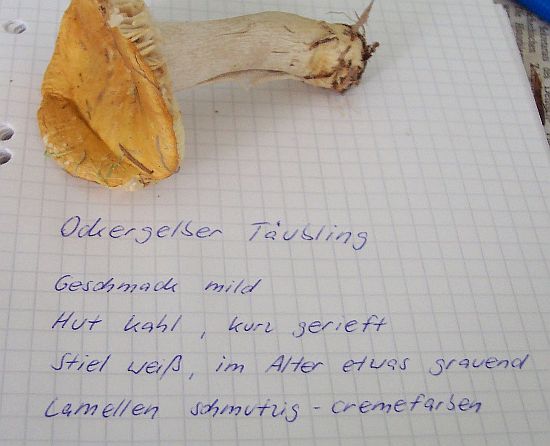 Ockergelber Täubling
Geschmack mild
Hut kahl, kurz gerieft
Stiel weiß, im Alter etwas grauend
Lamellen schmutzig-cremefarben